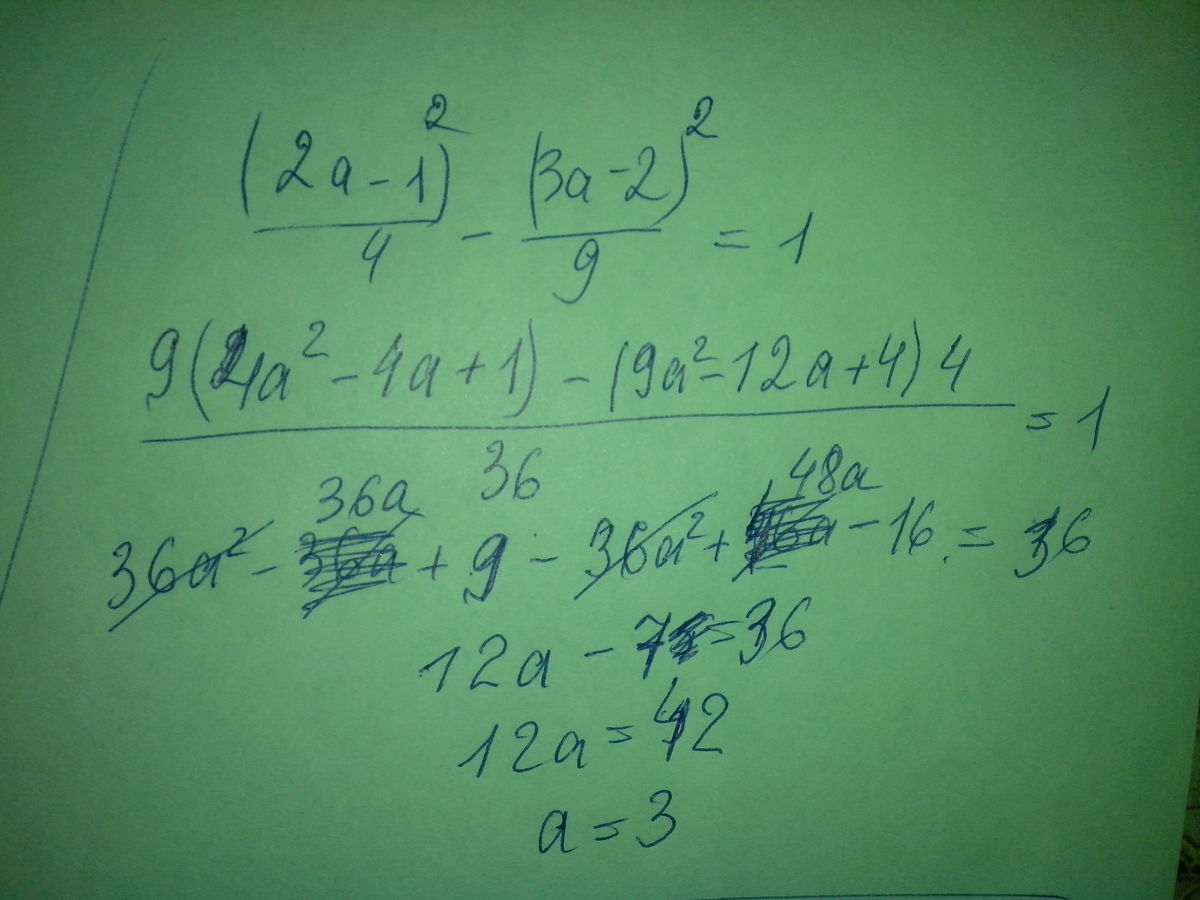 (2a-1)²/4 - (3a-2)²/9 = 1
9(4a²-4a+1) - (9a²-12a+4)4 / 36 = 1
36a² - 36a + 9 - 36a² + 48a - 16 = 36
12a - 7 = 36
12a = 42
a = 3